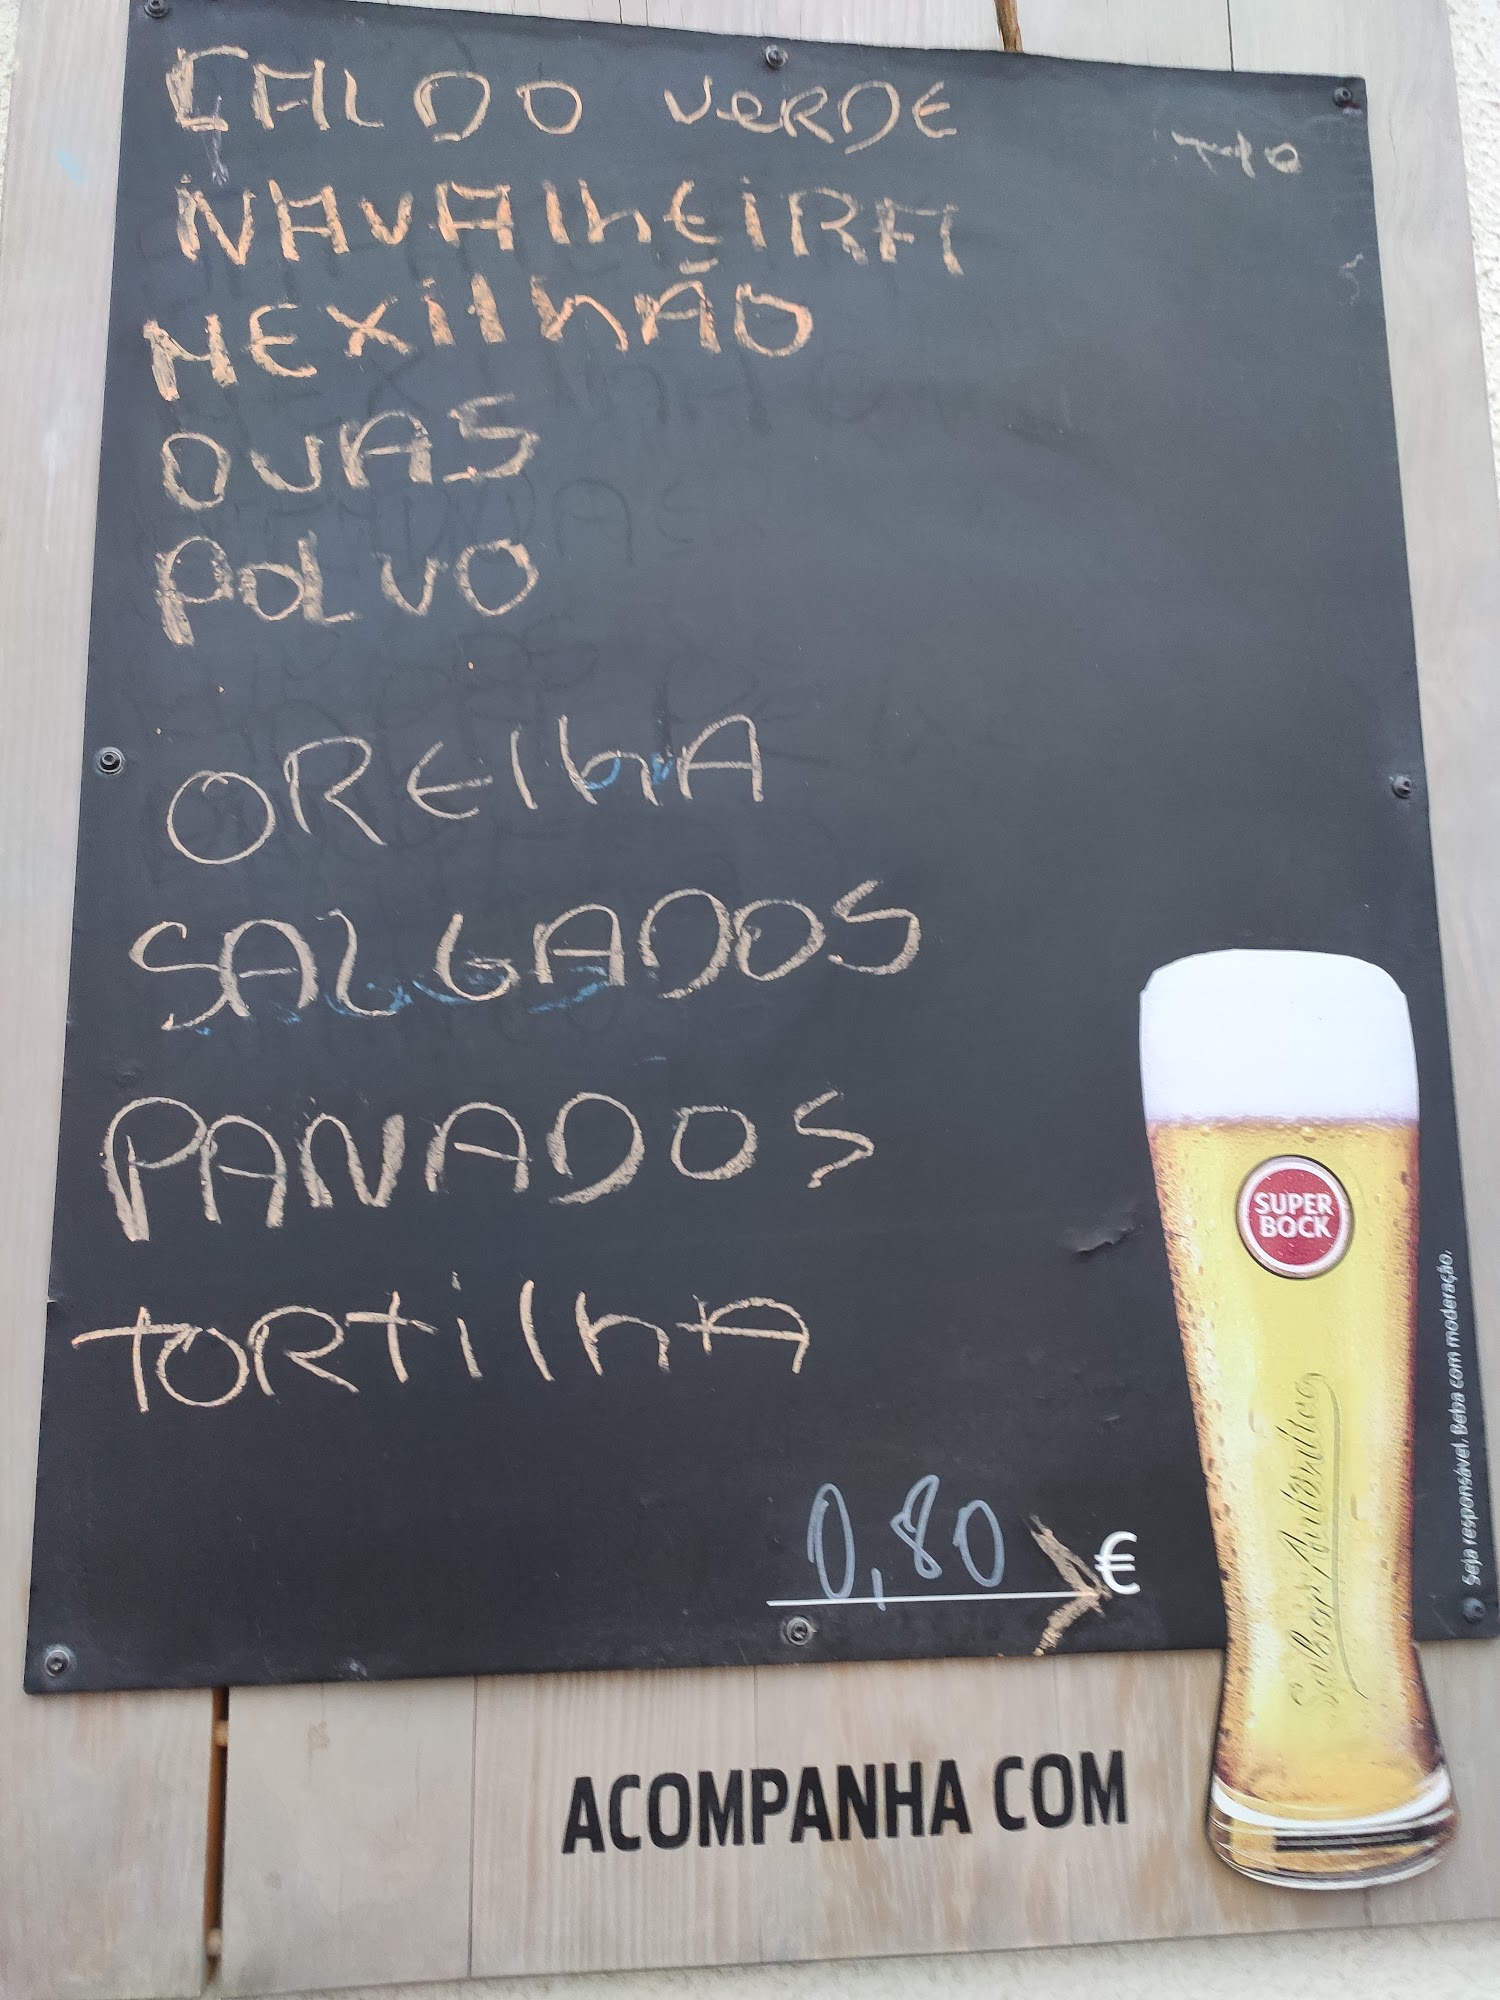 CALDO VERDE
NAVALHEIRA
MEXILHÃO
OVAS
POLVO
ORELHA
SALGADOS
PANADOS
TORTILHA
0,80 €
SUPER
BOCK
Sabor Autêntico
Seja responsável. Beba com moderação.
ACOMPANHA COM